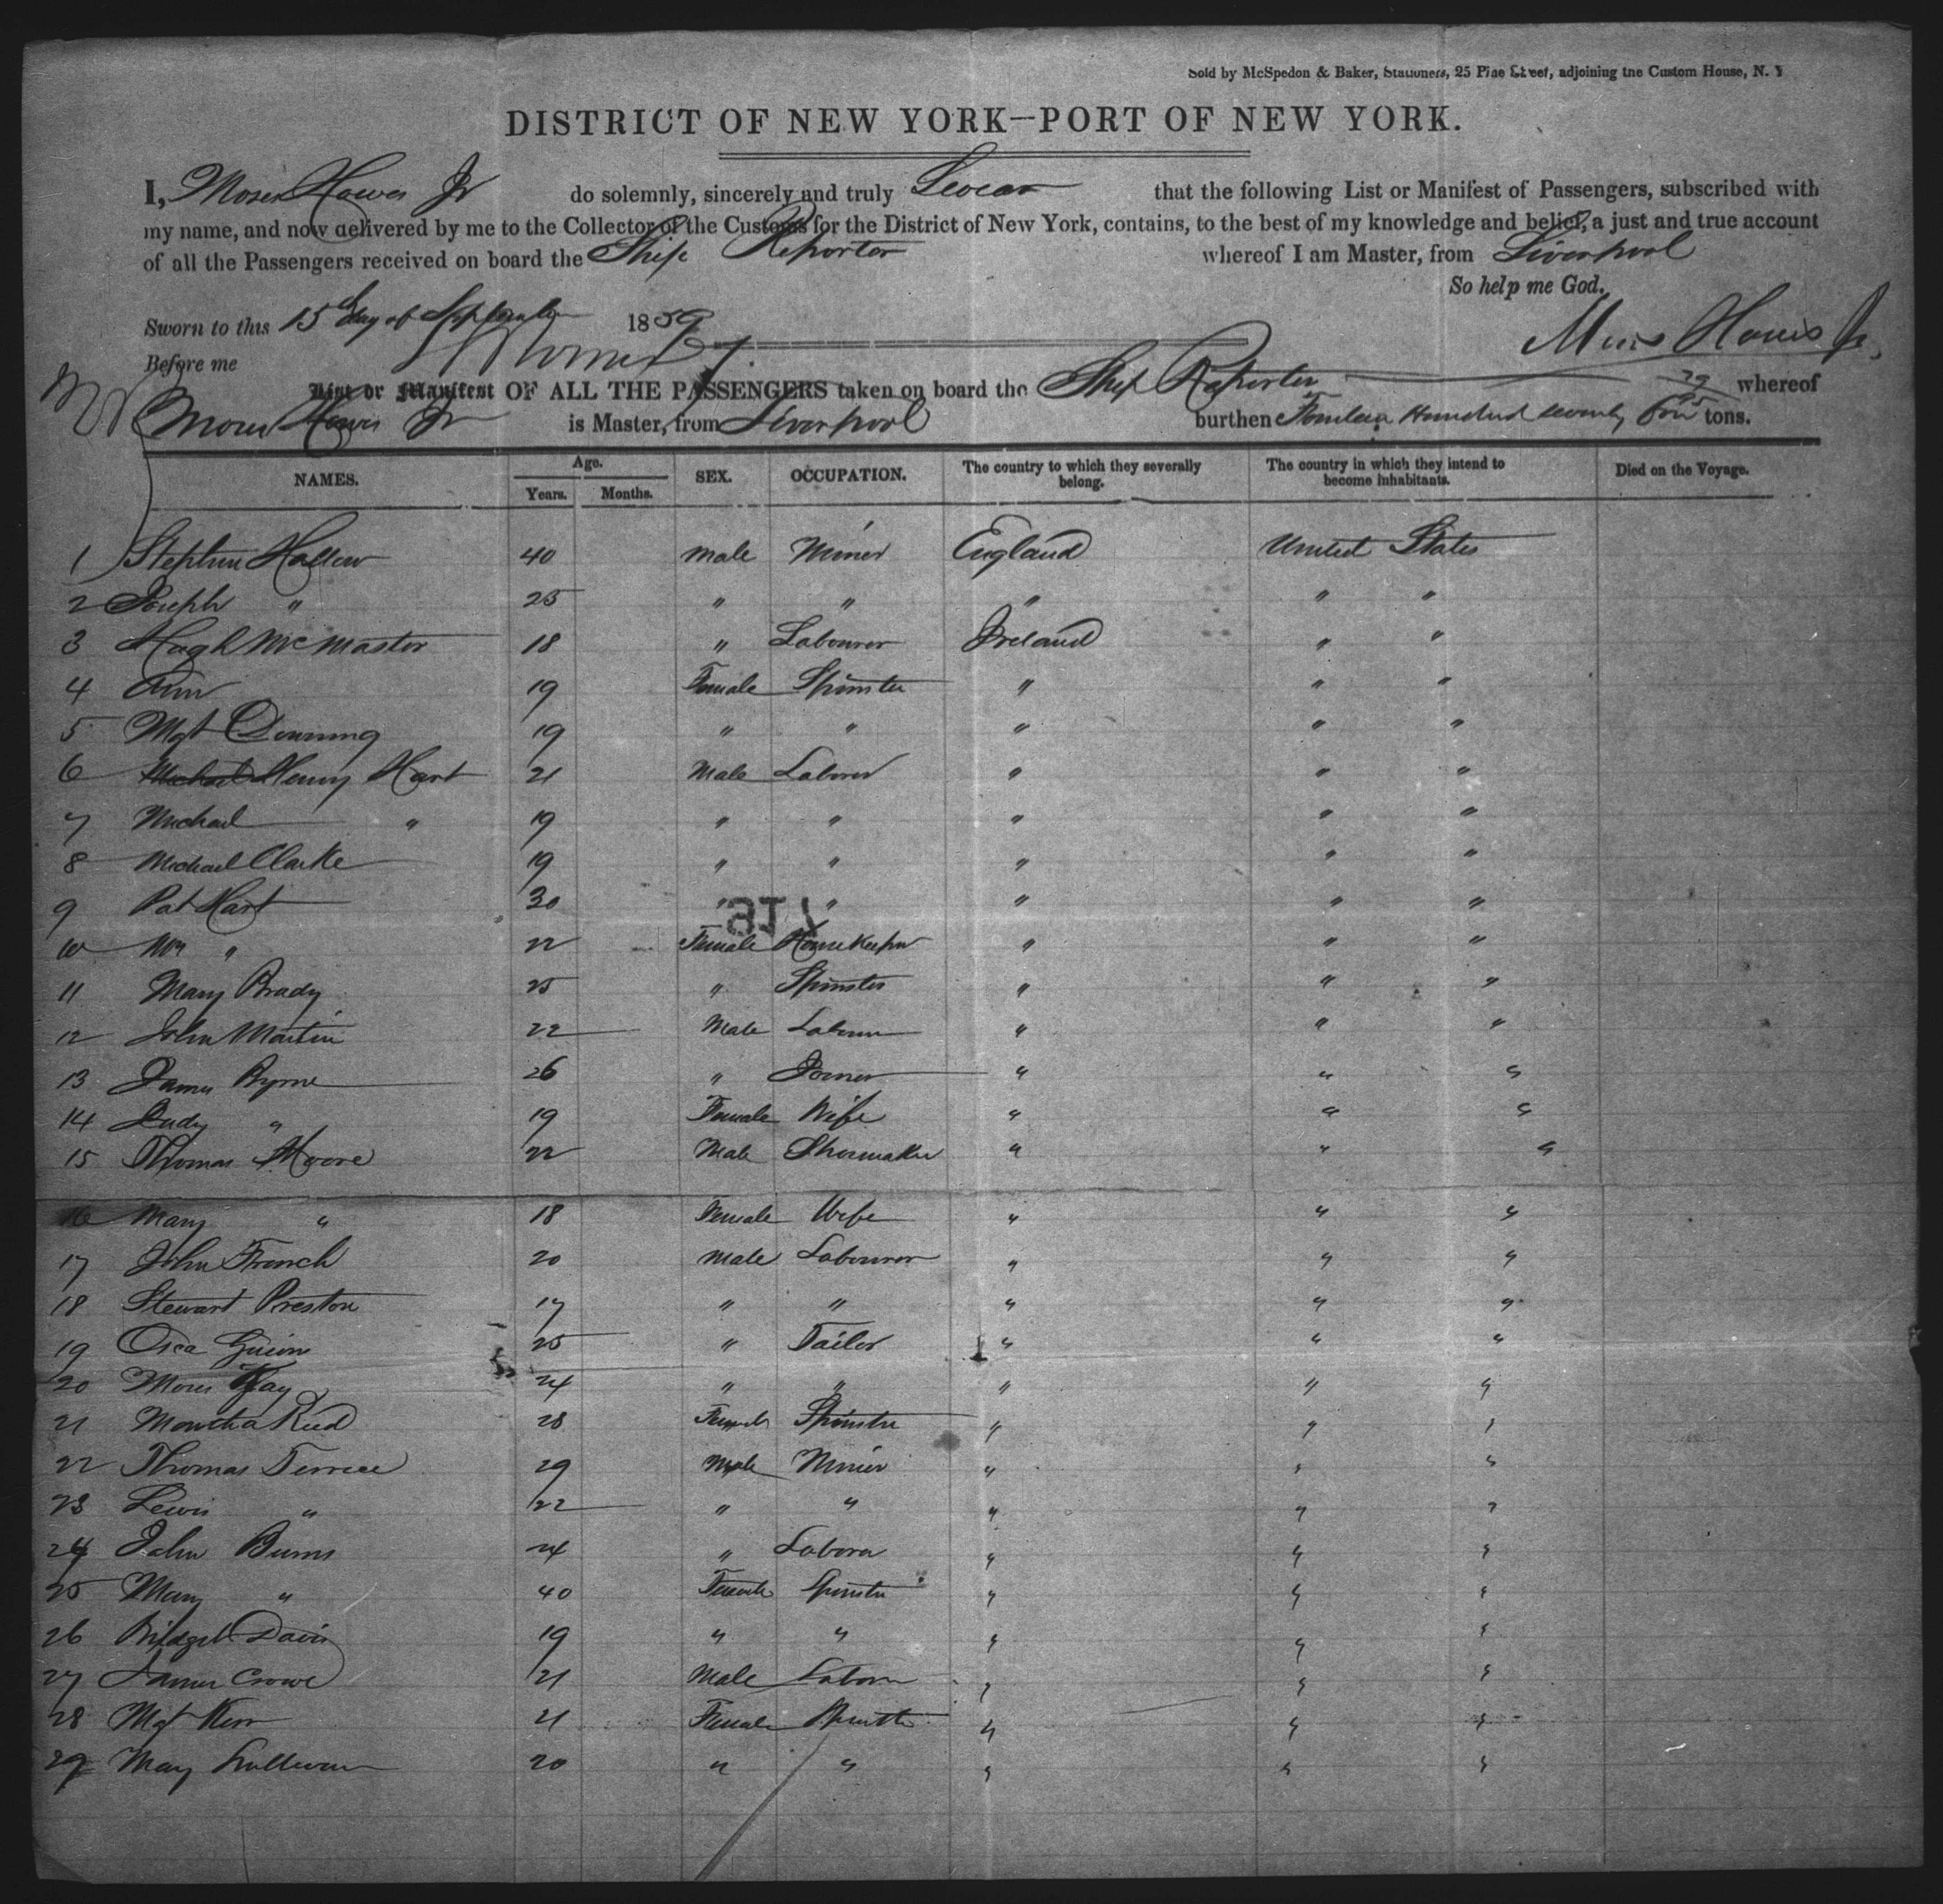 Sold by McSpedon & Baker, Stationers, 25 Pine Street, adjoining the Custom House, N. Y
DISTRICT OF NEW YORK—PORT OF NEW YORK.
I, Moses Howes Jr do solemnly, sincerely and truly Swear that the following List or Manifest of Passengers, subscribed with
my name, and now delivered by me to the Collector of the Customs for the District of New York, contains, to the best of my knowledge and belief, a just and true account
of all the Passengers received on board the Ship Reporter whereof I am Master, from Liverpool
So help me God.
Sworn to this 15 Day of September 1859
Moses Howes Jr.
Before me
List or Manifest OF ALL THE PASSENGERS taken on board the Ship Reporter whereof
Moses Howes Jr is Master, from Liverpool burthen Fourteen Hundred seventy four 29/95 tons.
NAMES. Age. Years. Months. SEX. OCCUPATION. The country to which they severally belong. The country in which they intend to become inhabitants. Died on the Voyage.
1 Stephen Hallew 40 male Miner England United States
2 Joseph " 25 " " " " "
3 Hugh McMaster 18 " Labourer Ireland " "
4 Ann 19 Female Spinster " " "
5 Mgt Downing 19 " " " " "
6 Michael Henry Hart 21 Male Laborer " " "
7 Michael " 19 " " " " "
8 Michael Clarke 19 " " " " "
9 Pat Hart 30 " " " " "
10 " 22 Female Housekeeper " " "
11 Mary Brady 25 " Spinster " " "
12 John Martin 22 Male Labourer " " "
13 James Byrne 26 " Joiner " " "
14 Judy " 19 Female Wife " " "
15 Thomas Moore 22 Male Shoemaker " " "
16 Mary " 18 Female Wife " " "
17 John French 20 Male Labourer " " "
18 Stewart Preston 17 " " " " "
19 25 " Tailor " " "
20 Moses 24 " " " " "
21 Martha Reed 28 Female Spinster " " "
22 Thomas Terrell 29 Male Miner " " "
23 Lewis " 22 " " " " "
24 John Burns 24 " Laborer " " "
25 Mary " 40 Female Spinster " " "
26 Bridget Davis 19 " " " " "
27 James Crowe 21 Male Laborer " " "
28 Mgt Kerr 21 Female Spinster " " "
29 Mary Sullivan 20 " " " " "